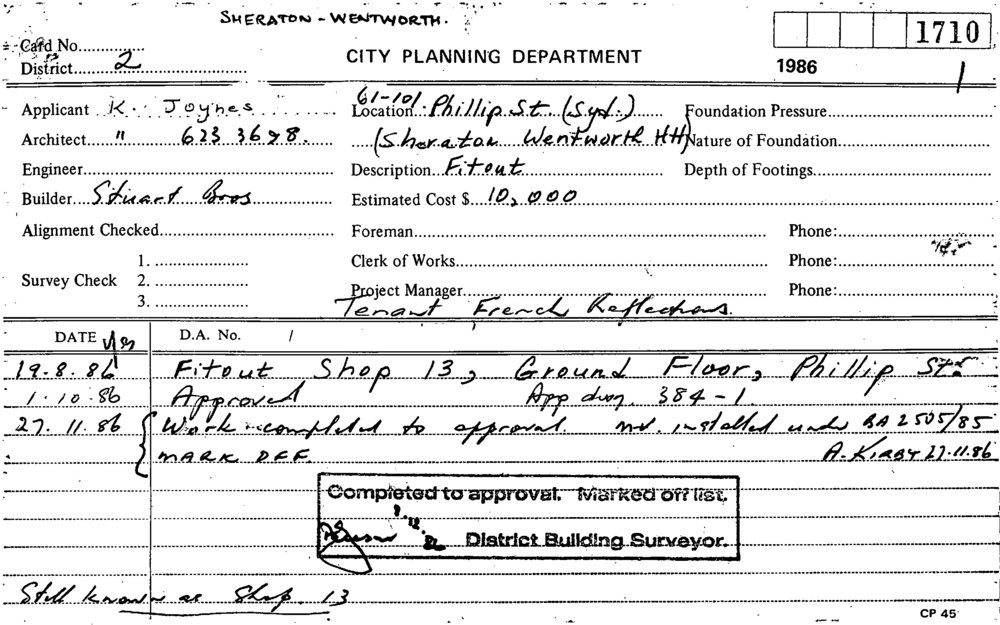 SHERATON - WENTWORTH.
Card No.
District 2
CITY PLANNING DEPARTMENT
1710
1986
1
Applicant K. Joynes
Location 61-101 Phillip St (Syd.)
Foundation Pressure
Architect " 623 3698.
(Sheraton Wentworth HH)
Nature of Foundation
Engineer
Description Fitout
Depth of Footings
Builder Stuart Bros
Estimated Cost $ 10,000
Alignment Checked
Foreman
Phone:
Clerk of Works
Phone:
Survey Check 1.
2.
3.
Project Manager
Phone:
Tenant French Reflections.
DATE
D.A. No. /
19.8.86 Fitout Shop 13, Ground Floor, Phillip St.
1.10.86 Approved App dwg. 384-1.
27.11.86 Work completed to approval. installed under BA 2505/85
MARK OFF. A. KIRBY 27.11.86
Completed to approval. Marked off list.
District Building Surveyor.
Still known as Shop 13
CP 45